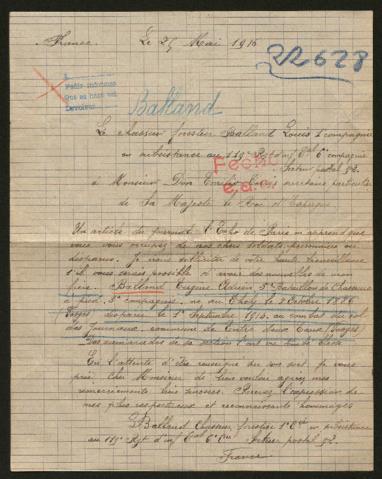 France. Le 25 Mai 1916
22628
Balland
Le Chasseur forestier Balland Louis 1e compagnie
en subsistance au 119e Rgt d'inf 6e compagnie
Secteur postal 92.
à Monsieur Don Emilio secrétaire particulier
de Sa Majesté le Roi d'Espagne
Un article du journal l'Echo de Paris m'apprend que
vous vous occupez de nos chers soldats prisonniers ou
disparus. Je viens solliciter de votre haute bienveillance
s'il vous serait possible d'avoir des nouvelles de mon
frère. Balland Eugène 5e Bataillon de Chasseurs
à pied, 3e compagnie, né au Tholy le 2 Octobre 1886
Vosges disparu le 1er Septembre 1914 au combat du col
des Journaux, commune de Entre deux Eaux (Vosges)
Des camarades de sa section l'ont vu
En l'attente d'être renseigné sur son sort, je vous
prie Cher Monsieur de bien vouloir agréer mes
remerciements bien sincères. Recevez l'expression de
mes plus respectueux et reconnaissants hommages
Balland Chasseur forestier 1e Cie en subsistance
au 119e Rgt d'inf 6e Cie Secteur postal 92.
France